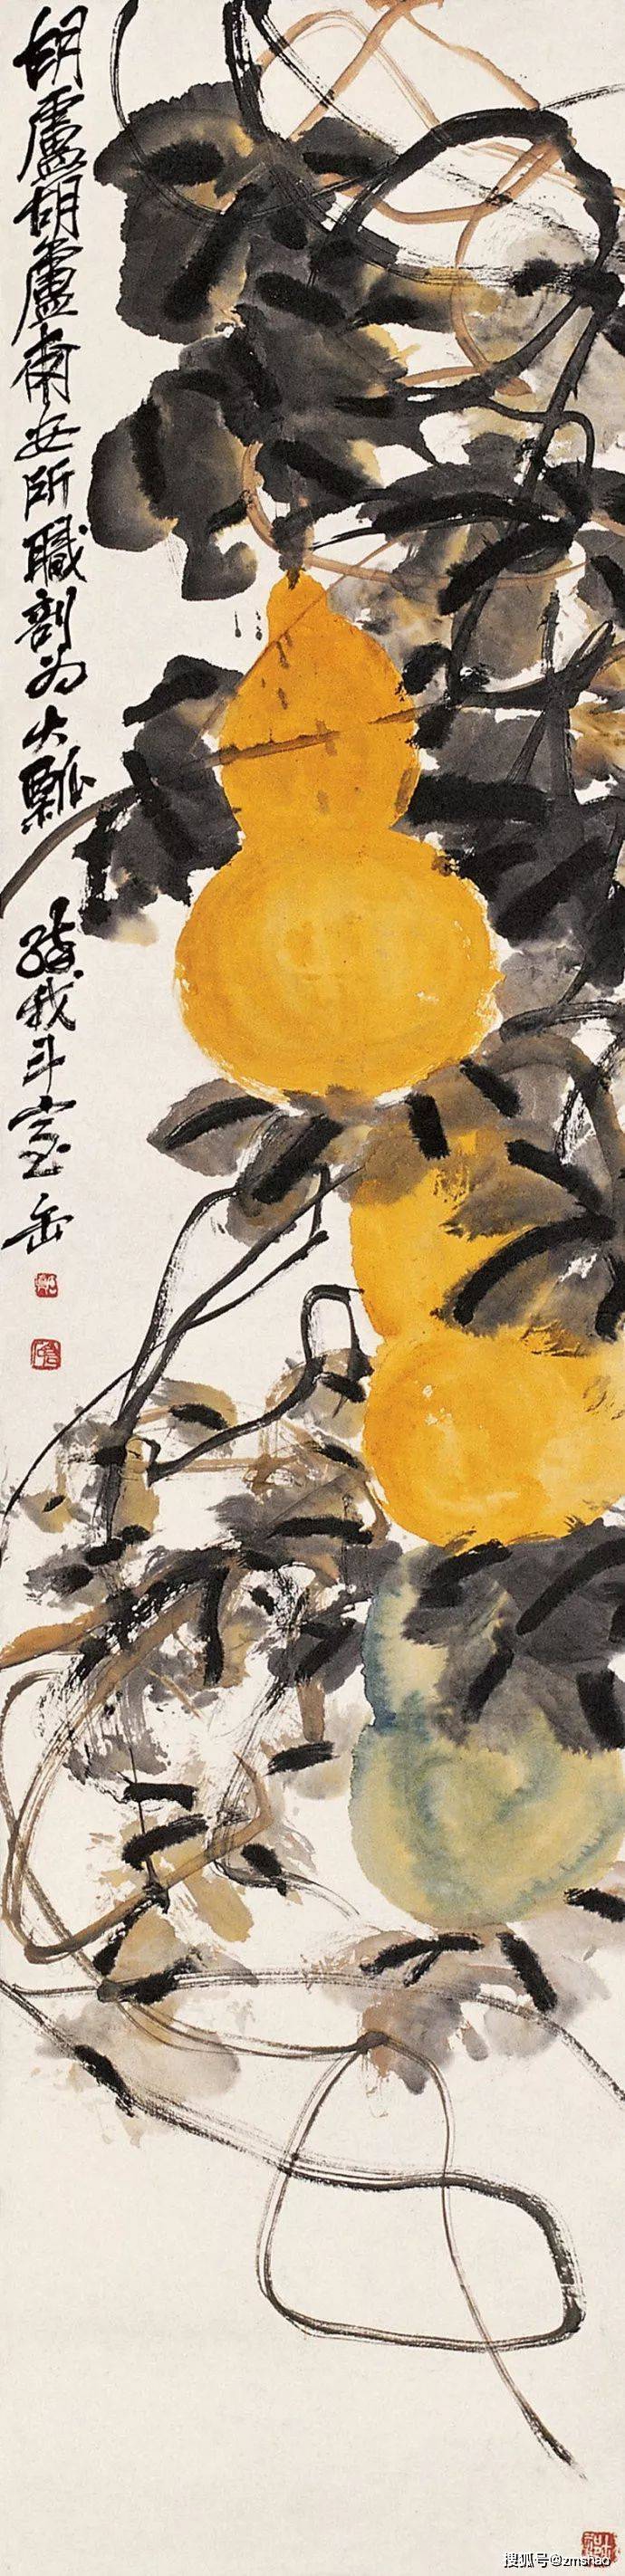 胡盧胡盧安所職剖为大瓢 我斗室 缶
搜狐号@zmshao